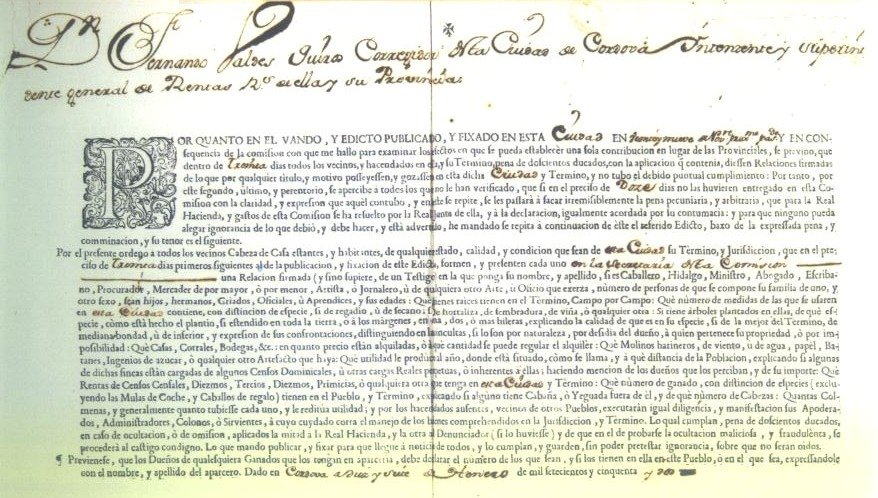 Dn. Fernando Valdes Quiros Corregidor de la Ciudad de Cordova Yntendente y Superin
dente general de Rentas Rs. de ella y su Provincia
POR QUANTO EN EL VANDO, Y EDICTO PUBLICADO, Y FIXADO EN ESTA Ciudad EN Y EN CON-
sequencia de la comision con que me hallo para examinar los efectos en que se pueda establecèr una sola contribucion en lugar de las Provinciales, se previno, que
dentro de treinta dias todos los vecinos, y hacendados en ella, y su Termino, pena de doscientos ducados, con la aplicacion q contenia, diessen Relaciones firmadas
de lo que por qualquier titulo, y motivo posseyessen, y gozassen en esta dicha Ciudad y Termino, y no tubo el debido puntual cumplimiento: Por tanto, por
este segundo, ultimo, y perentorio, se apercibe à todos los que no le han verificado, que si en el preciso de Doze dias no las huvieren entregado en esta Co-
mision con la claridad, y expresion que aquèl contubo, y en este se repite, se les passarà à sacar irremisiblemente la pena pecuniaria, y arbitraria, que para la Real
Hacienda, y gastos de esta Comision se ha resuelto por la Real Junta de ella, y à la declaracion, igualmente acordada por su contumacia: y para que ninguno pueda
alegar ignorancia de lo que debiò, y debe hacer, y està advertido, he mandado se repita à continuacion de este el referido Edicto, baxo de la expressada pena, y
comminacion, y su tenor es el siguiente.
Por el presente ordeno à todos los vecinos Cabeza de Casa estantes, y habitantes, de qualquier estado, calidad, y condicion que sean de esta Ciudad su Término, y Jurisdiccion, que en el pre-
ciso de treinta dias primeros siguientes al de la publicacion, y fixacion de este Edicto, formen, y presenten cada uno en la Secretaria de la Comision
una Relacion firmada (y sino supiere, de un Testigo) en la que ponga su nombre, y apellido, si es Caballero, Hidalgo, Ministro, Abogado, Escriba-
no, Procurador, Mercader de por mayor, ò por menor, Artista, ò Jornalero, ù de qualquiera otro Arte, ù Oficio que exerza, número de personas de que se compone su familia de uno, y
otro sexo, sean hijos, hermanos, Criados, Oficiales, ù Aprendices, y sus edades: Què bienes raices tienen en el Término, Campo por Campo: Què número de medidas de las que se usaren
en esta Ciudad contiene, con distincion de especie, si de regadìo, ù de secano: Si de hortaliza, de sembradura, de viña, ò qualquier otra: Si tiene árboles plantados en ellas, de què es-
pecie, còmo està hecho el plantìo, si estendido en toda la tierra, ò à los márgenes, en una, dos, ò mas hileras, explicando la calidad de que es en su especie, si de la mejor del Termino, de
mediana bondad, ù de inferior, y expresion de sus confrontaciones, distinguiendo en las incultas, si lo son por naturaleza, por desidia del dueño, à quien pertenece su propriedad, ò por im-
posibilidad: Què Casas, Corrales, Bodegas, &c.: en quanto precio estàn alquiladas, ò à que cantidad se puede regular el alquiler: Què Molinos harineros, de viento, ù de agua, papèl, Ba-
tanes, Ingenios de azucar, ò qualquier otro Artefacto que haya: Què utilidad le produce al año, donde està situado, còmo se llama, y à què distancia de la Poblacion, explicando si algunas
de dichas fincas estàn cargadas de algunos Censos Dominicales, ù otras cargas Reales perpetuas, ò inherentes à ellas; haciendo mencion de los dueños que los perciban, y de su importe: Què
Rentas de Censos Censales, Diezmos, Tercios Diezmos, Primicias, ò qualquiera otra que tenga en esta Ciudad y Término: Què número de ganado, con distincion de especies (exclu-
yendo las Mulas de Coche, y Caballos de regalo) tienen en el Pueblo, y Término, explicando si alguno tiene Cabaña, ò Yeguada fuera de èl, y de què número de Cabezas: Quantas Col-
menas, y generalmente quanto tubiesse cada uno, y le reditua utilidad; y por los hacendados ausentes, vecinos de otros Pueblos, executaràn igual diligencia, y manifestacion sus Apodera-
dos, Administradores, Colonos, ò Sirvientes, à cuyo cuydado corra el manejo de los bienes comprehendidos en la Jurisdiccion, y Término. Lo qual cumplan, pena de doscientos ducados,
en caso de ocultacion, ò de omision, aplicados la mitad à la Real Hacienda, y la otra al Denunciador (si lo huviesse) y de que en el de probarse la ocultacion maliciosa, y fraudulenta, se
procederà al castigo condigno. Lo que mando publicar, y fixar para que llegue à noticia de todos, y lo cumplan, y guarden, sin poder pretestar ignorancia, sobre que no seràn oidos.
¶ Previenese, que los Dueños de qualesquiera Ganados que los tengan en aparceria, debe declarar el número de los que sean, y si los tienen en ella en este Pueblo, ò en el que sea, expressandole
con el nombre, y apellido del aparcero. Dado en Cordova a diez y siete de Henero de mil setecientos y cinquenta y dos